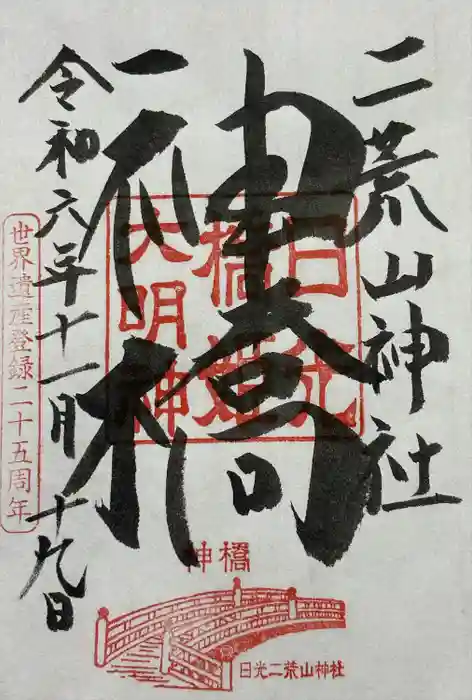 二荒山神社
神橋
日光
橋姫
大明神
令和六年十一月十九日
世界遺産登録二十五周年
神橋
日光二荒山神社